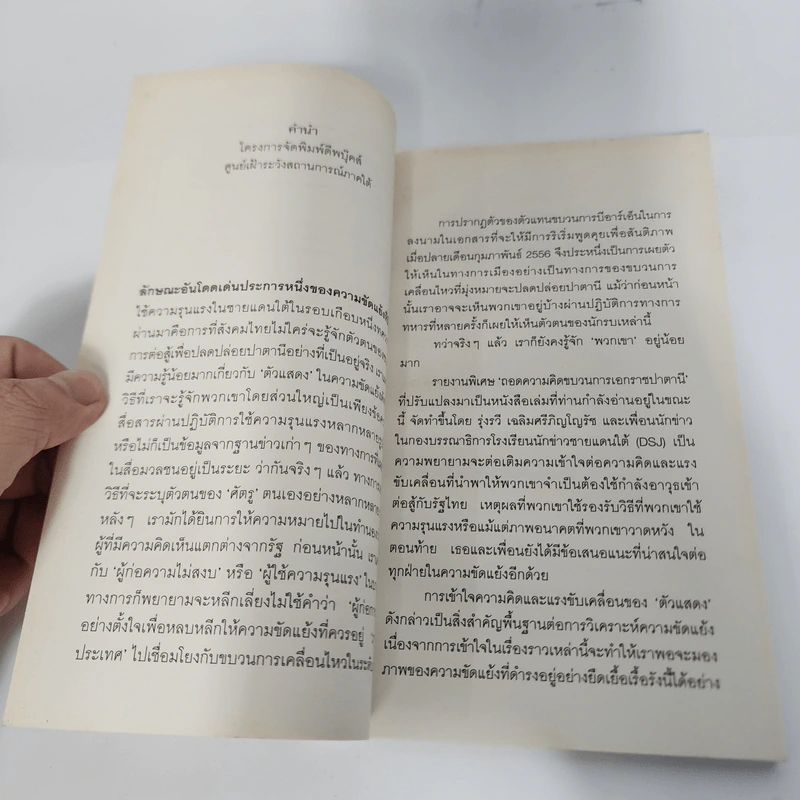 คำนำ
โครงการจัดพิมพ์ดีพบุ๊คส์
ศูนย์เฝ้าระวังสถานการณ์ภาคใต้
ลักษณะอันโดดเด่นประการหนึ่งของความขัดแย้งที่
ใช้ความรุนแรงในชายแดนใต้ในรอบเกือบหนึ่ง
ผ่านมาคือการที่สังคมไทยไม่ใคร่จะรู้จักตัวตนของ
การต่อสู้เพื่อปลดปล่อยปาตานีอย่างที่เป็นอยู่จริง เรา
มีความรู้น้อยมากเกี่ยวกับ 'ตัวแสดง' ในความขัดแย้ง
วิธีที่เราจะรู้จักพวกเขาโดยส่วนใหญ่เป็นเพียง
สื่อสารผ่านปฏิบัติการใช้ความรุนแรงหลากหลาย
หรือไม่ก็เป็นข้อมูลจากฐานข่าวเก่าๆ ของทางการที่
ในสื่อมวลชนอยู่เป็นระยะ ว่ากันจริงๆ แล้ว ทางการ
วิธีที่จะระบุตัวตนของ 'ศัตรู' ตนเองอย่างหลากหลาย
หลังๆ เรามักได้ยินการให้ความหมายไปในทำนอง
ผู้ที่มีความคิดเห็นแตกต่างจากรัฐ ก่อนหน้านั้น เรา
กับ 'ผู้ก่อความไม่สงบ' หรือ 'ผู้ใช้ความรุนแรง' ใน
ทางการก็พยายามจะหลีกเลี่ยงไม่ใช้คำว่า 'ผู้ก่อการ
อย่างตั้งใจเพื่อหลบหลีกให้ความขัดแย้งที่ควรอยู่
ประเทศ' ไปเชื่อมโยงกับขบวนการเคลื่อนไหวในระดับ
การปรากฏตัวของตัวแทนขบวนการบีอาร์เอ็นในการ
ลงนามในเอกสารที่จะให้มีการริเริ่มพูดคุยเพื่อสันติภาพ
เมื่อปลายเดือนกุมภาพันธ์ 2556 จึงประหนึ่งเป็นการเผยตัว
ให้เห็นในทางการเมืองอย่างเป็นทางการของขบวนการ
เคลื่อนไหวที่มุ่งหมายจะปลดปล่อยปาตานี แม้ว่าก่อนหน้า
นั้นเราอาจจะเห็นพวกเขาอยู่บ้างผ่านปฏิบัติการทางการ
ทหารที่หลายครั้งก็เผยให้เห็นตัวตนของนักรบเหล่านี้
ทว่าจริงๆ แล้ว เราก็ยังคงรู้จัก 'พวกเขา' อยู่น้อย
มาก
รายงานพิเศษ 'ถอดความคิดขบวนการเอกราชปาตานี'
ที่ปรับแปลงมาเป็นหนังสือเล่มที่ท่านกำลังอ่านอยู่ในขณะ
นี้ จัดทำขึ้นโดย รุ่งรวี เฉลิมศรีภิญโญรัช และเพื่อนนักข่าว
ในกองบรรณาธิการโรงเรียนนักข่าวชายแดนใต้ (DSJ) เป็น
ความพยายามจะต่อเติมความเข้าใจต่อความคิดและแรง
ขับเคลื่อนที่นำพาให้พวกเขาจำเป็นต้องใช้กำลังอาวุธเข้า
ต่อสู้กับรัฐไทย เหตุผลที่พวกเขาใช้รองรับวิธีที่พวกเขาใช้
ความรุนแรงหรือแม้แต่ภาพอนาคตที่พวกเขาวาดหวัง ใน
ตอนท้าย เธอและเพื่อนยังได้มีข้อเสนอแนะที่น่าสนใจต่อ
ทุกฝ่ายในความขัดแย้งอีกด้วย
การเข้าใจความคิดและแรงขับเคลื่อนของ 'ตัวแสดง'
ดังกล่าวเป็นสิ่งสำคัญพื้นฐานต่อการวิเคราะห์ความขัดแย้ง
เนื่องจากการเข้าใจในเรื่องราวเหล่านี้จะทำให้เราพอจะมอง
ภาพของความขัดแย้งที่ดำรงอยู่อย่างยืดเยื้อเรื้อรังนี้ได้อย่าง